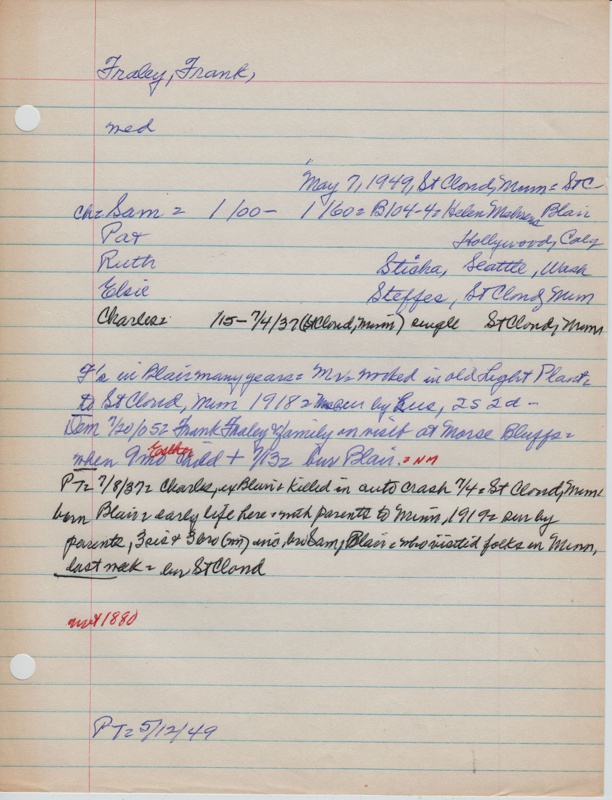 Fraley, Frank,
med
May 7, 1949, St Cloud, Minn = St C
ch = Sam = 1/00 - 1/60 = B104-4 = Helen Blair
Pat Hollywood, Calif
Ruth Stiska, Seattle, Wash
Elsie Steffes, St Cloud, Minn
Charles = /15 - 7/4/37 (St Cloud, Minn) single St Cloud, Minn
F's in Blair many years = Mr = worked in old Light Plant =
to St Cloud, Minn 1918 = sur by 2s 2d -
Dem 7/20/05 = Frank Fraley & family on visit at Morse Bluffs =
Esther
when 9 mo child + 7/13 = bur Blair. = NM
PT = 7/8/37 = Charles, ex Blair = killed in auto crash 7/4 = St Cloud, Minn =
born Blair = early life here = with parents to Minn, 1919 = sur by
parents, 3 sis & 3 bro (nn) inc, bro Sam, Blair = who visited folks in Minn,
last week = bur St Cloud
1880
PT = 5/12/49